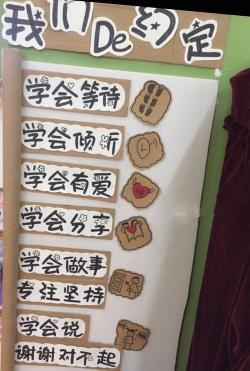 我们De约定
学会等待
学会倾听
学会有爱
学会分享
学会做事
专注坚持
学会说
谢谢对不起